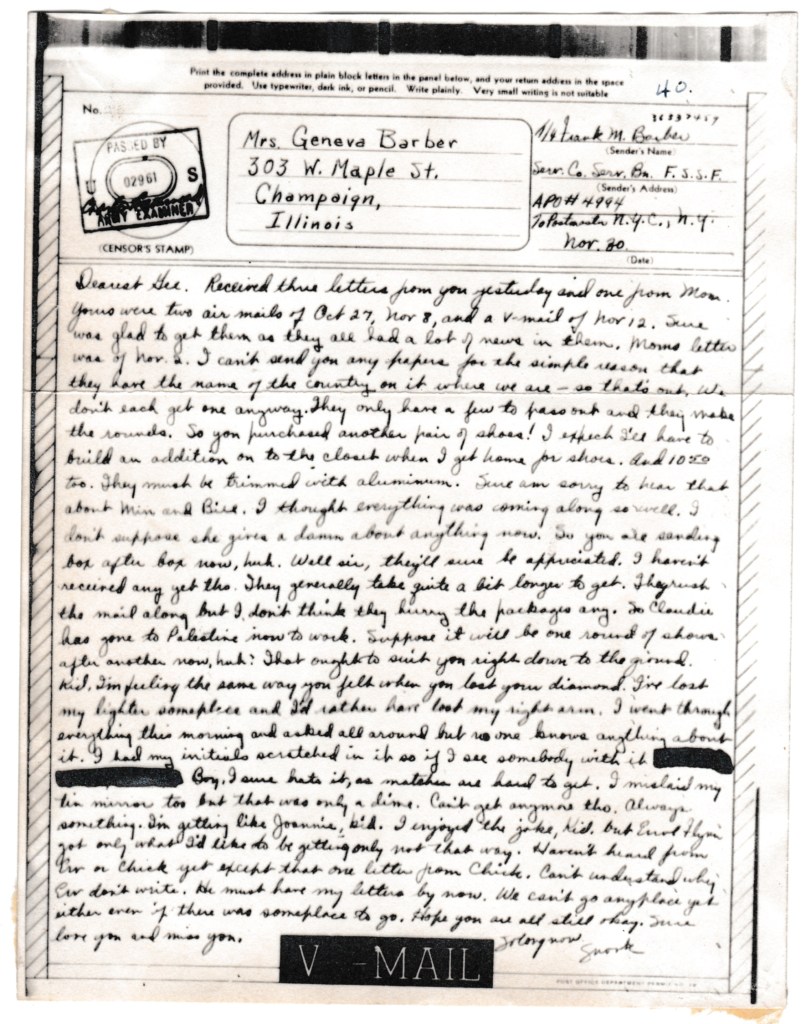 Print the complete address in plain block letters in the panel below, and your return address in the space
provided. Use typewriter, dark ink, or pencil. Write plainly. Very small writing is not suitable
40.
No.
PASSED BY
U S
02961
ARMY EXAMINER
(CENSOR'S STAMP)
Mrs. Geneva Barber
303 W. Maple St.
Champaign,
Illinois
T/4 Frank M. Barber
(Sender's Name)
Serv. Co. Serv. Bn. F.S.S.F.
(Sender's Address)
APO# 4994
To Postmaster N.Y.C., N.Y.
Nov. 20
(Date)
Dearest Gee. Received three letters from you yesterday and one from Mom.
Yours were two air mails of Oct 27, Nov 8, and a V-mail of Nov 12. Sure
was glad to get them as they all had a lot of news in them. Moms letter
was of Nov. 2. I can't send you any papers for the simple reason that
they have the name of the country on it where we are - so thats out. We
don't each get one anyway. They only have a few to pass out and they make
the rounds. So you purchased another pair of shoes! I expect I'll have to
build an addition on to the closet when I get home for shoes. And 10.50
too. They must be trimmed with aluminum. Sure am sorry to hear that
about Min and Bill. I thought everything was coming along so well. I
don't suppose she gives a damn about anything now. So you are sending
box after box now, huh. Well sir, they'll sure be appreciated. I haven't
received any yet tho. They generally take quite a bit longer to get. They rush
the mail along but I don't think they hurry the packages any. So Claudie
has gone to Palestine now to work. Suppose it will be one round of shows
after another now, huh? That ought to suit you right down to the ground.
Kid, I'm feeling the same way you felt when you lost your diamond. I've lost
my lighter someplace and I'd rather have lost my right arm. I went through
everything this morning and asked all around but no one knows anything about
it. I had my initials scratched in it so if I see somebody with it
Boy, I sure hate it, as matches are hard to get. I mislaid my
tin mirror too but that was only a dime. Can't get anymore tho. Always
something. I'm getting like Joannie, kid. I enjoyed the joke, Kid. but Errol Flynn
got only what I'd like to be getting only not that way. Haven't heard from
Erv or Chick yet except that one letter from Chick. Can't understand why
Erv don't write. He must have my letters by now. We can't go anyplace yet
either even if there was someplace to go. Hope you are all still okay. Sure
love you and miss you.
So long now
V-MAIL